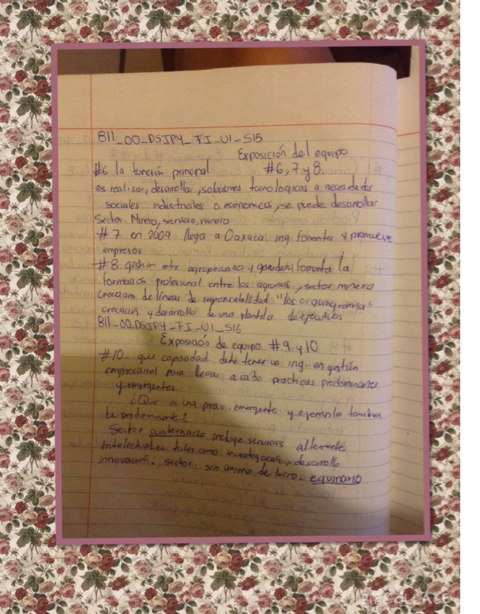 B11_00_DSJPY_FI_U1_S15
Exposición del equipo
#6 la función principal #6, 7 y 8.
es realizar, desarrollar, soluciones tecnologicas a necesidades
sociales industriales o economicas, se puede desarrollar
Sector Minero, servicio, minero
#7 en 2009 llega a Oaxaca ing. fomentar y promueve
empresas
#8. gestión entre agropecuaria y ganadera, fomenta la
formación profesional entre los agrarios, sector minero
creacion de líneas de responsabilidad "los organigramas"
creación y desarrollo de una plantilla de ejecutivos
B11_00_DSJPY_FI_U1_S16
Exposición de equipo #9 y 10
#10- que capacidad debe tener un ing- en gestión
empresarial para llevar a cabo practicas predominantes
y emergentes
¿Que es una prac. emergente y ejemplo tambien
Sector cuaternario incluye servicios altamente
intelectuales tales como investigación, desarrollo
innovación, sector sin animo de lucro- equinario